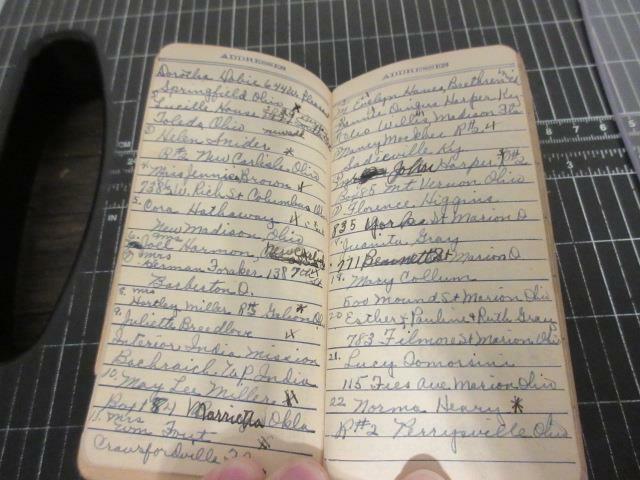 ADDRESSES
Dorotha
Springfield Ohio
Lucille House
Toledo, Ohio
Helen Snider
R#2 New Carlisle, Ohio
4. Miss Jennie Brown
2385 W. Rich St Columbus
5. Cora Hathaway
New Madison, Ohio
6. Harmon,
Mrs
Herman Foraker 138
Barberton O.
8. Mrs
Hartley Miller R#5 Galion O.
9. Juliette Breedlove
Interior India Mission
Bachraich U.P. India
10. May Lee Miller
Box 184 Marrietta Okla
11. Mrs
Wm Fout
Crawfordville
ADDRESSES
Evelyn Brethren
Harper Ky
Cleo Willis, Madison
Nancy R#4
Sadieville Ky
John Harper R#2
Box 85 Mt Vernon Ohio
Florence Higgins
835 York St Marion O
Juanita Gray
771 Bennett St Marion O.
19. Mary Collum
600 Mound St Marion Ohio
20. Esther & Pauline & Ruth Gray
783 Filmore St Marion Ohio
21. Lucy Tomorsini
115 Fies Ave Marion Ohio
22. Norma Heary
R#2 Perrysville Ohio